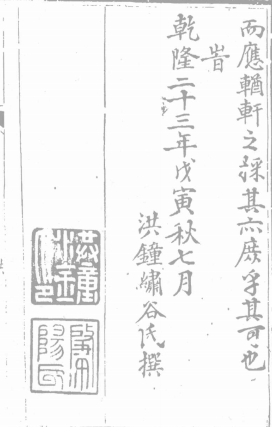 而應輶軒之採其亦庶乎其可也
旹
乾隆二十三年戊寅秋七月
洪鐘繡谷氏撰
洪鐘